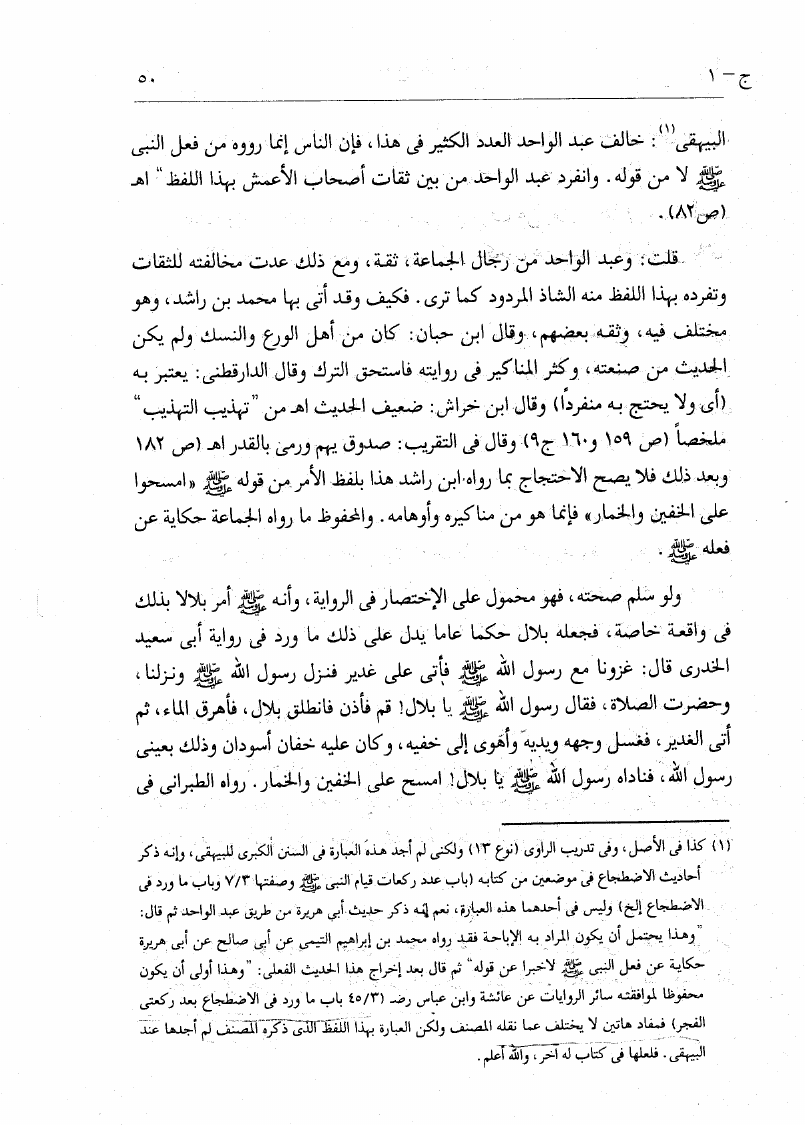 ج - ١ ٥٠
البيهقى(١): خالف عبد الواحد العدد الكثير فى هذا، فإن الناس إنما رووه من فعل النبى
ﷺ لا من قوله. وانفرد عبد الواحد من بين ثقات أصحاب الأعمش بهذا اللفظ" اهـ
(ص٨٢).
قلت: وعبد الواحد من رجال الجماعة، ثقة، ومع ذلك عدت مخالفته للثقات
وتفرده بهذا اللفظ منه الشاذ المردود كما ترى. فكيف وقد أتى بها محمد بن راشد، وهو
مختلف فيه، وثقه بعضهم، وقال ابن حبان: كان من أهل الورع والنسك ولم يكن
الحديث من صنعته، وكثر المناكير فى روايته فاستحق الترك وقال الدارقطنى: يعتبر به
(أى ولا يحتج به منفرداً) وقال ابن خراش: ضعيف الحديث اهـ من "تهذيب التهذيب"
ملخصاً (ص ١٥٩ و١٦٠ ج٩) وقال فى التقريب: صدوق يهم ورمى بالقدر اهـ (ص ١٨٢
وبعد ذلك فلا يصح الاحتجاج بما رواه ابن راشد هذا بلفظ الأمر من قوله ﷺ «امسحوا
على الخفين والخمار» فإنما هو من مناكيره وأوهامه. والمحفوظ ما رواه الجماعة حكاية عن
فعله ﷺ.
ولو سلم صحته، فهو محمول على الإختصار فى الرواية، وأنه ﷺ أمر بلالا بذلك
فى واقعة خاصة، فجعله بلال حكما عاما يدل على ذلك ما ورد فى رواية أبى سعيد
الخدرى قال: غزونا مع رسول الله ﷺ فأتى على غدير فنزل رسول الله ﷺ ونزلنا،
وحضرت الصلاة، فقال رسول الله ﷺ يا بلال! قم فأذن فانطلق بلال، فأهرق الماء، ثم
أتى الغدير، فغسل وجهه ويديه وأهوى إلى خفيه، وكان عليه خفان أسودان وذلك بعينى
رسول الله، فناداه رسول الله ﷺ يا بلال! امسح على الخفين والخمار. رواه الطبرانى فى
(١) كذا فى الأصل، وفى تدريب الراوى (نوع ١٣) ولكنى لم أجد هذه العبارة فى السنن الكبرى للبيهقى، وإنه ذكر
أحاديث الاضطجاع فى موضعين من كتابه (باب عدد ركعات قيام النبى ﷺ وصفتها ٧/٣ وباب ما ورد فى
الاضطجاع إلخ) وليس فى أحدهما هذه العبارة، نعم إنه ذكر حديث أبي هريرة من طريق عبد الواحد ثم قال:
"وهذا يحتمل أن يكون المراد به الإباحة فقد رواه محمد بن إبراهيم التيمى عن أبى صالح عن أبى هريرة
حكاية عن فعل النبى ﷺ لاخبرا عن قوله" ثم قال بعد إخراج هذا الحديث الفعلى: "وهذا أولى أن يكون
محفوظا لموافقته سائر الروايات عن عائشة وابن عباس رضـ (٤٥/٣ باب ما ورد فى الاضطجاع بعد ركعتى
الفجر) فمفاد هاتين لا يختلف عما نقله المصنف ولكن العبارة بهذا اللفظ الذى ذكره المصنف لم أجدها عند
البيهقى. فلعلها فى كتاب له آخر، والله أعلم.